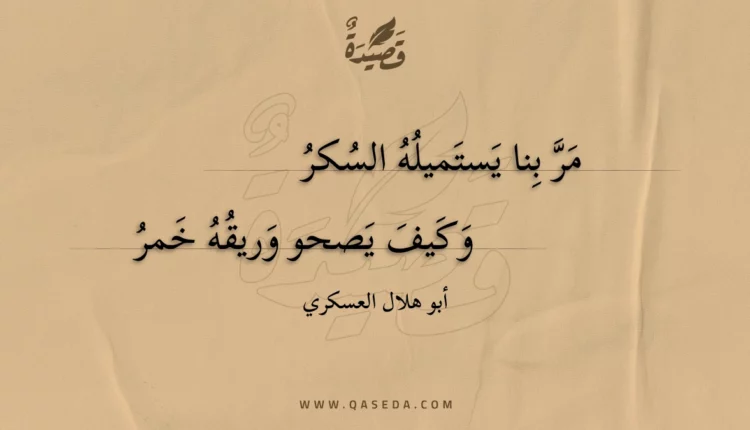 قَصِيْدَةٌ
مَرَّ بِنا يَستَميلُهُ السُكرُ
وَكَيفَ يَصحو وَريقُهُ خَمرُ
أبو هلال العسكري
WWW.QASEDA.COM